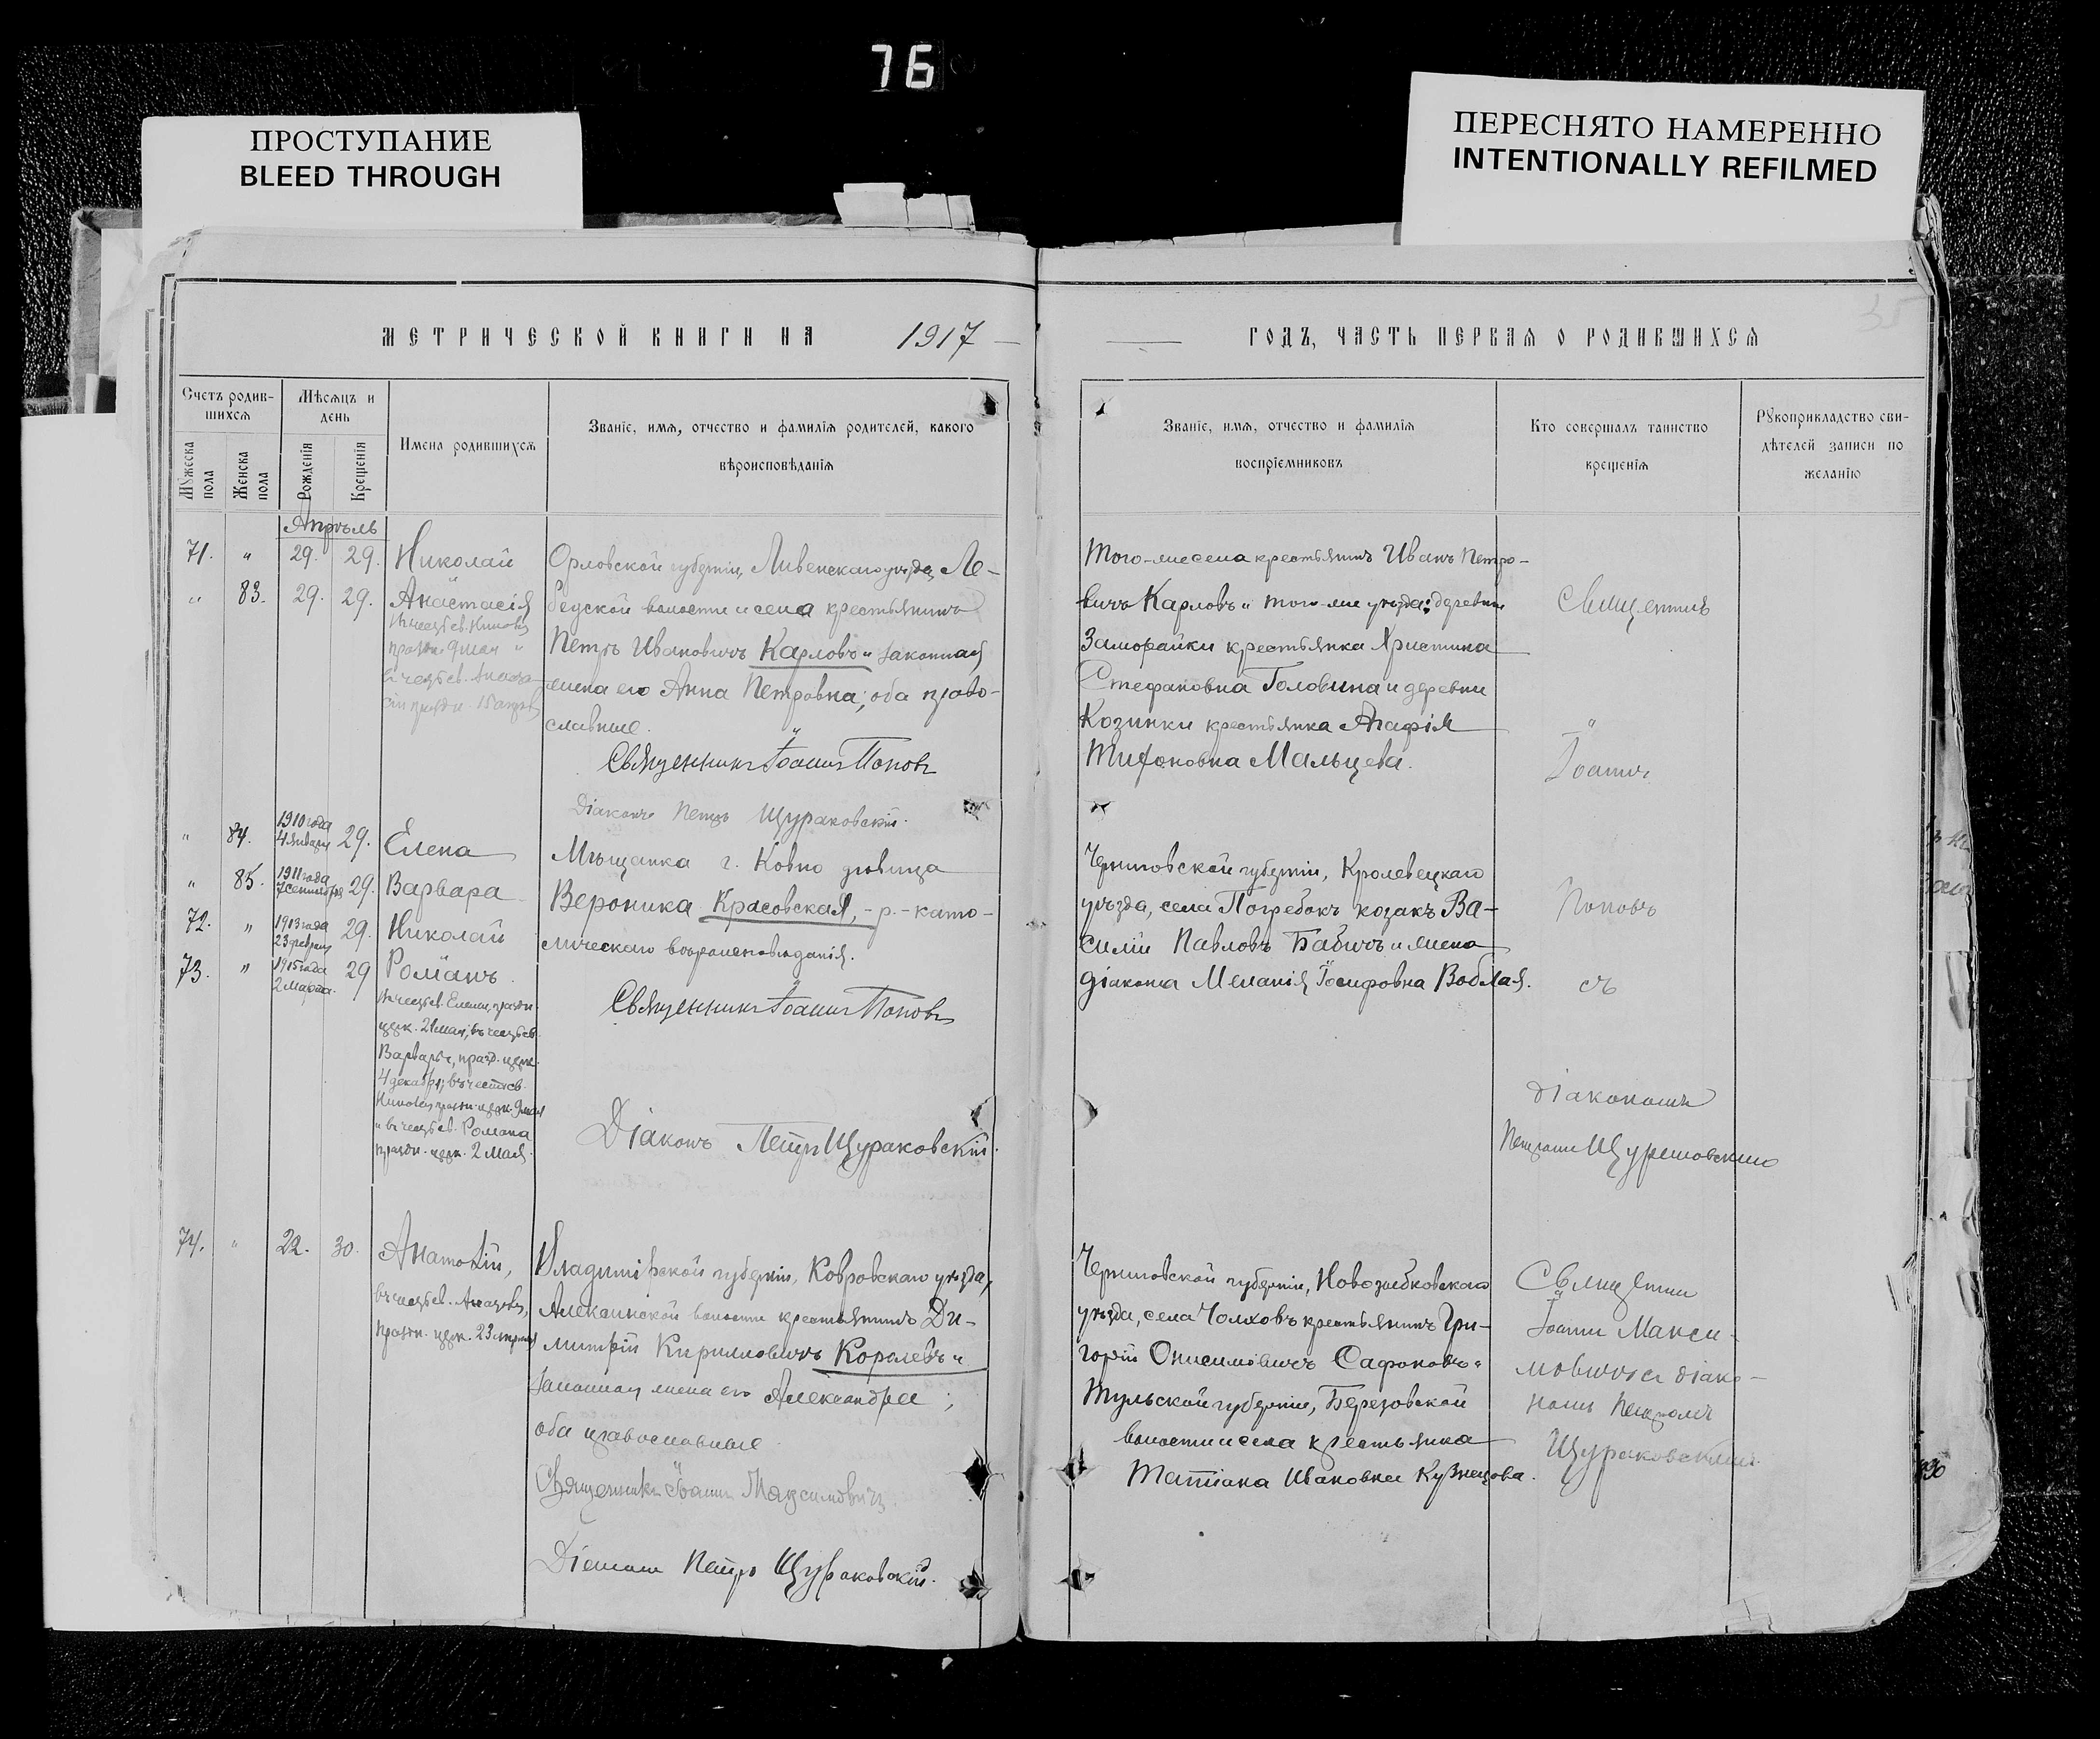 76
ПРОСТУПАНИЕ
BLEED THROUGH
ПЕРЕСНЯТО НАМЕРЕННО
INTENTIONALLY REFILMED
МЕТРИЧЕСКОЙ КНИГИ НА 1917
Счетъ родив-
шихся
Мѣсяцъ и
день
Мужеска
пола
Женска
пола
Рожденія
Крещенія
Имена родившихся
Званіе, имя, отчество и фамилія родителей, какого
вѣроисповѣданія
Апрѣль
71. " 29. 29. Николай
" 83. 29. 29. Анастасія
Орловской губерніи, Ливенскаго уѣзда, Ле-
волости и села крестьянинъ
Петръ Ивановичъ Карловъ и законная
жена его Анна Петровна; оба право-
славные.
Священникъ Іоаннъ Поповъ
Діаконъ Петръ Щураковскій.
" 84. 1910 года 4 января 29. Елена
" 85. 1911 года 7 сентября 29. Варвара
72. " 1913 года 23 февраля 29. Николай
73. " 1915 года 2 марта. 29 Романъ.
въ честь св. Елены, праздн.
церк. 21 мая, въ честь св.
Варвары, празд. церк.
4 декабря, въ честь св.
Николая праздн. церк. 9 мая
и въ честь св. Романа
праздн. церк. 2 мая.
Мѣщанка г. Ковно дѣвица
Вероника Красовская, - р. - като-
лическаго вѣроисповѣданія.
Священникъ Іоаннъ Поповъ
Діаконъ Петръ Щураковскій.
74. " 22. 30. Анатолій,
въ честь св.
праздн. церк. 23 апрѣля
Владимірской губерніи, Ковровскаго уѣзда,
Алексинской волости крестьянинъ Ди-
митрій Кирилловичъ Королевъ и
законная жена его Александра ;
оба православные.
Священникъ Іоаннъ Максимовичъ.
Діаконъ Петръ Щураковскій.
ГОДЪ, ЧАСТЬ ПЕРВАЯ О РОДИВШИХСЯ
Званіе, имя, отчество и фамилія
воспріемниковъ
Кто совершалъ таинство
крещенія
Рукоприкладство сви-
дѣтелей записи по
желанію
Того-же села крестьянинъ Иванъ Петро-
вичъ Карловъ и того-же уѣзда: деревни
Заморайки крестьянка Христина
Стефановна Головина и деревни
Козинки крестьянка Агафія
Тифоновна Мальцева.
Священникъ
Іоаннъ
Черниговской губерніи, Кролевецкаго
уѣзда, села Погребокъ козакъ Ва-
силій Павловъ Бабичъ и жена
діакона Меланія Іосифовна Воблая.
Поповъ
съ
діакономъ
Петромъ
Черниговской губерніи, Новозыбковскаго
уѣзда, села Чолховъ крестьянинъ Гри-
горій Онисимовичъ Сафоновъ и
Тульской губерніи, Березовской
волости и села крестьянка
Татіана Ивановна Кузнецова.
Священникъ
Іоаннъ Макси-
мовичъ съ діако-
номъ Петромъ
Щураковскимъ.